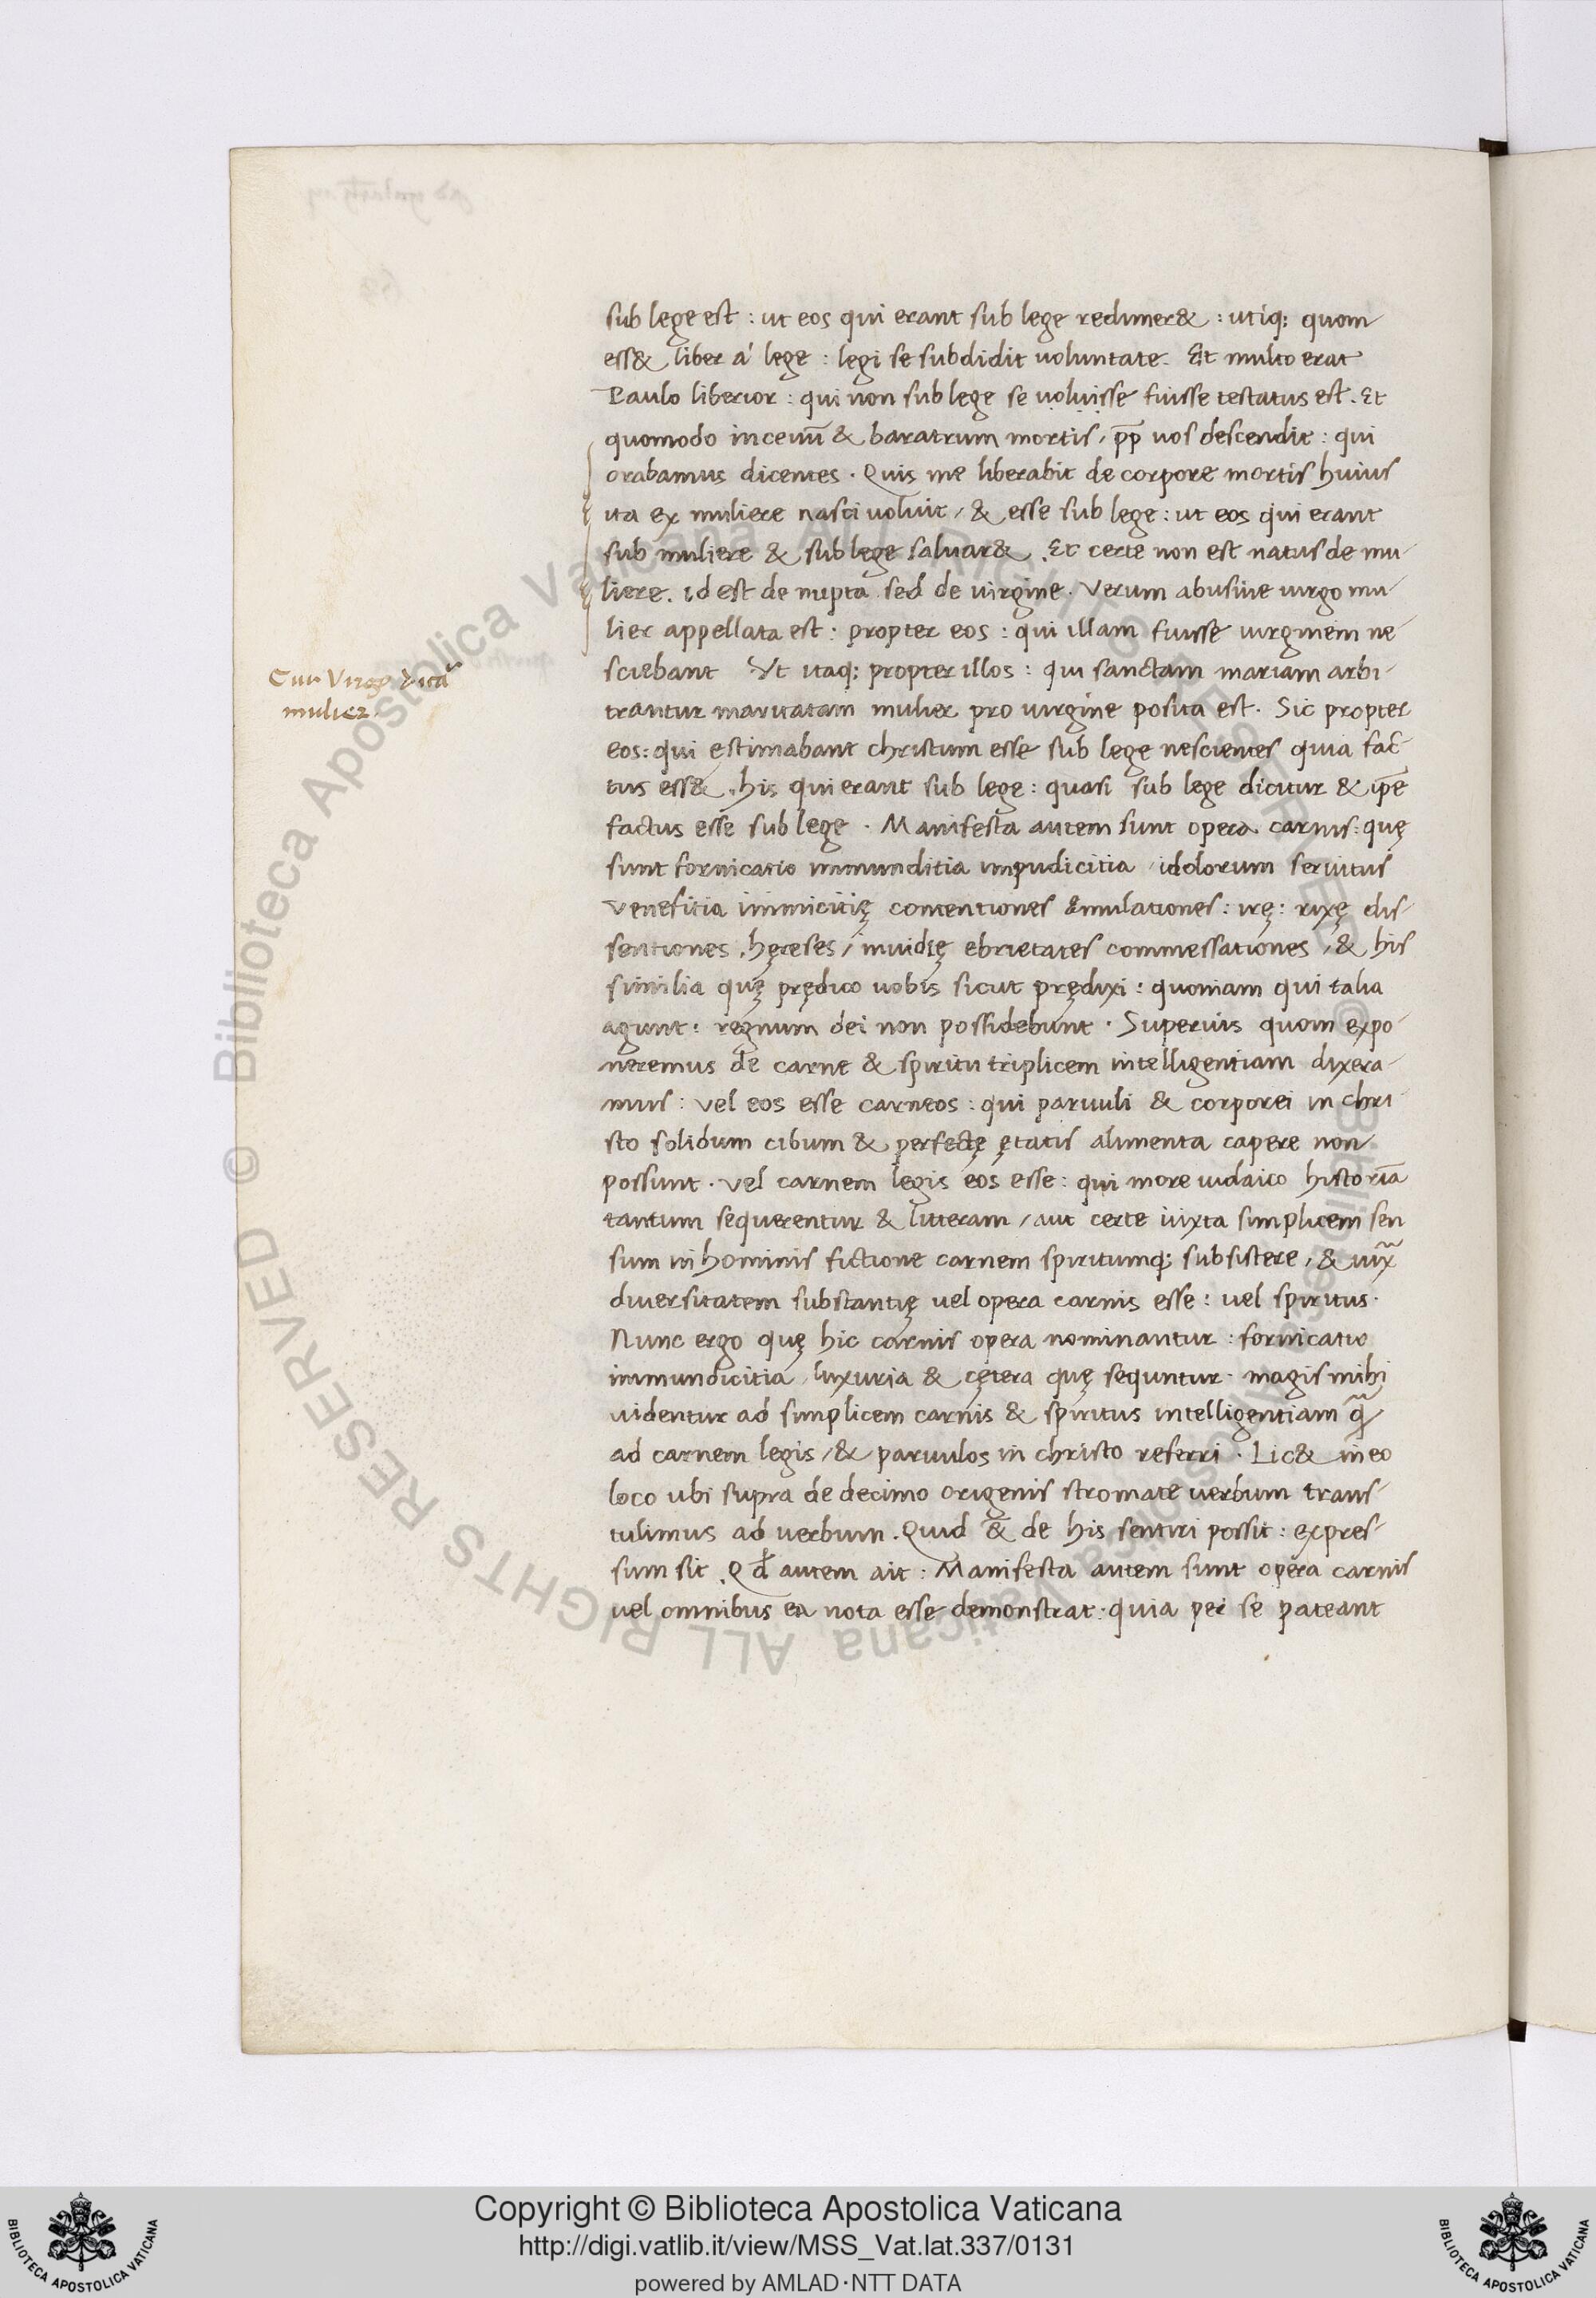 sub lege est : ut eos qui erant sub lege redimer& : utiq; quom
ess& liber á lege : legi se subdidit uoluntate. Et multo erat
Paulo liberior : qui non sub lege se uoluisse fuisse testatus est. Et
quomodo in & baratrum mortis, pp̄ uos descendit : qui
orabamus dicentes . Quis me liberabit de corpore mortis huius
ita ex muliere nasci uoluit, & esse sub lege : ut eos qui erant
sub muliere & sub lege saluar& . Et certe non est natus de mu-
liere. id est de nupta sed de uirgine. Verum abusiue uirgo mu-
lier appellata est : propter eos : qui illam fuisse uirginem ne-
sciebant Vt itaq; propter illos : qui sanctam mariam arbi-
Cur Virgo dicat̄
mulier.
trantur maritatam mulier pro uirgine posita est. Sic propter
eos : qui estimabant christum esse sub lege nescientes quia fac-
tus ess& . his qui erant sub lege : quasi sub lege dicitur & ip̄e
factus esse sub lege . Manifesta autem sunt opera carnis : quę
sunt fornicatio immunditia impudicitia , idolorum seruitus
Venefitia inimicitię contentiones &mulationes : irę : rixę dis-
sentiones . hęreses, inuidię ebrietates commessationes , & his
similia quę prędico uobis sicut prędixi : quoniam qui talia
agunt : regnum dei non possidebunt . Superius quom expo-
neremus de carne & spiritu triplicem intelligentiam dixera-
mus : vel eos esse carneos : qui paruuli & corporei in chri-
sto solidum cibum & perfectę ętatis alimenta capere non
possunt . vel carnem legis eos esse : qui more iudaico historiā
tantum sequerentur & litteram , aut certe iuxta simplicem sen
sum in hominis fictione carnem spiritumq; subsistere, & iux̄
diuersitatem substantię uel opera carnis esse : uel spiritus.
Nunc ergo quę hic carnis opera nominantur : fornicatio
immundicitia , luxuria & cętera quę sequntur . magis mihi
uidentur ad simplicem carnis & spiritus intelligentiam q̄
ad carnem legis, & paruulos in christo referri . Lic& in eo
loco ubi supra de decimo origenis stromate uerbum trans-
tulimus ad uerbum . Quid &̄ de his sentiri possit : expres-
sum sit . Qđ autem ait : Manifesta autem sunt opera carnis
uel omnibus ea nota esse demonstrat : quia per se pateant
© Biblioteca Apostolica Vaticana ALL RIGHTS RESERVED
Copyright © Biblioteca Apostolica Vaticana
http://digi.vatlib.it/view/MSS_Vat.lat.337/0131
powered by AMLAD·NTT DATA
BIBLIOTECA APOSTOLICA VATICANA
BIBLIOTECA APOSTOLICA VATICANA